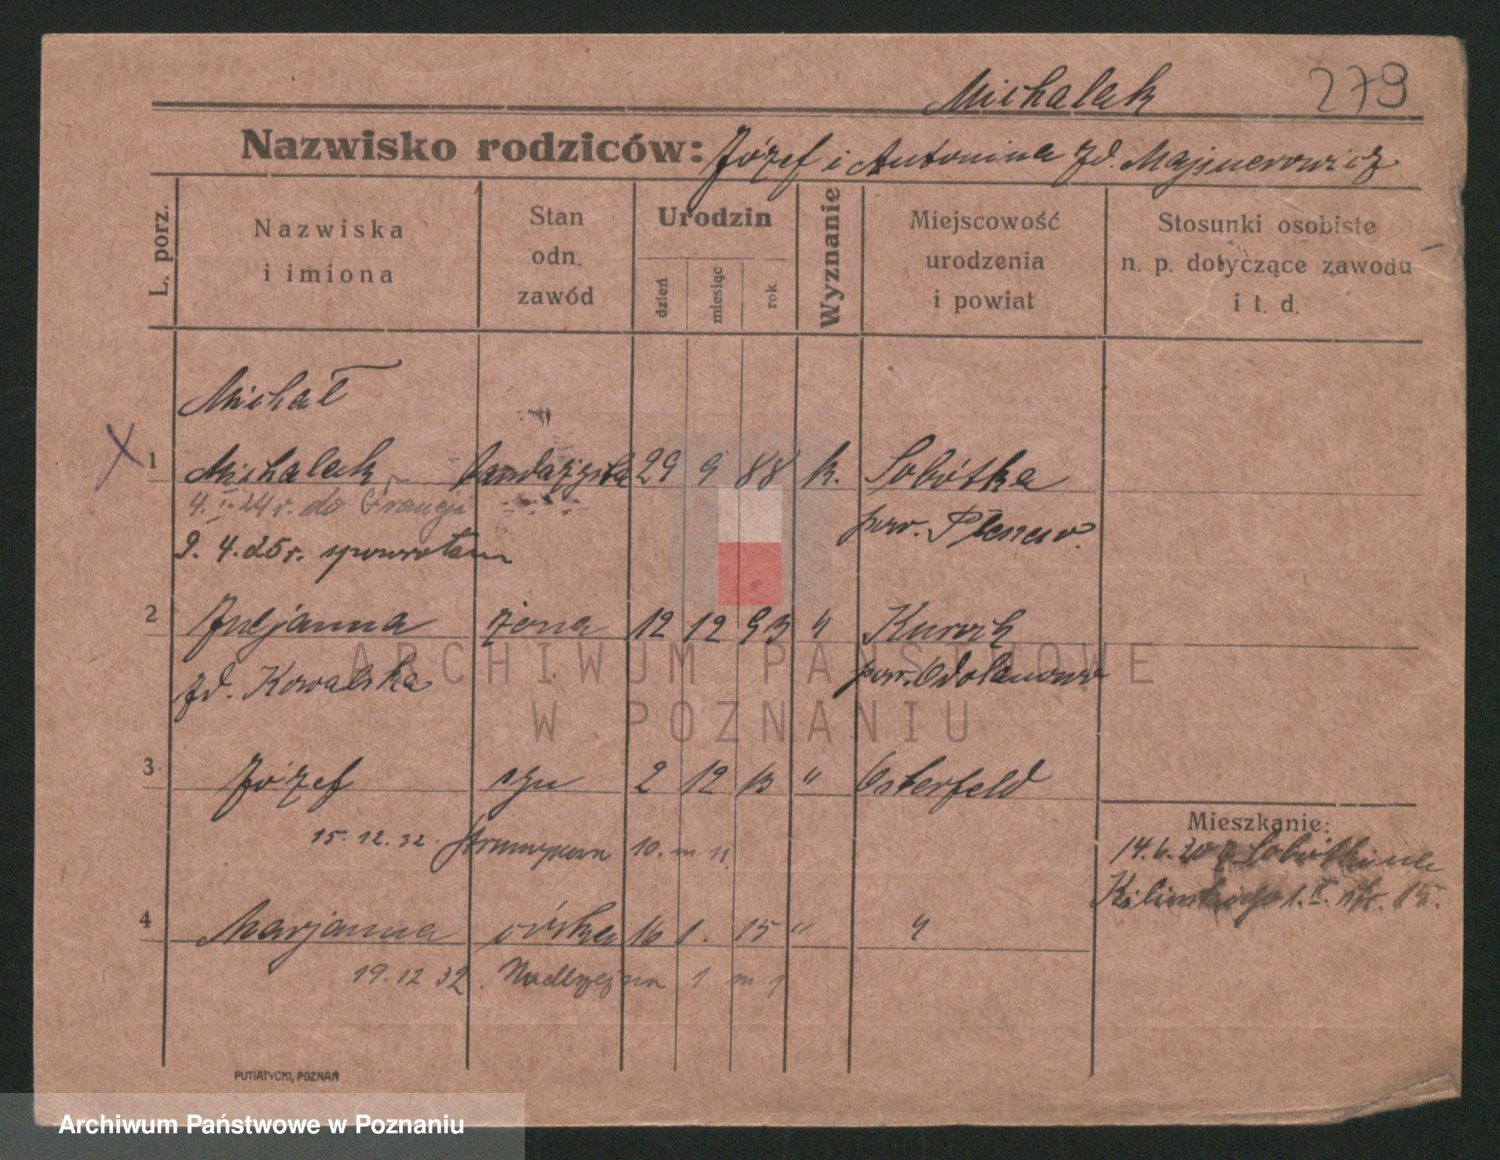 Michalak 279
Nazwisko rodziców: Józef i Antonina zd. Majsnerowicz
L. porz.
Nazwiska
i imiona
Stan
odn.
zawód
Urodzin
dzień
miesiąc
rok
Wyznanie
Miejscowość
urodzenia
i powiat
Stosunki osobiste
n. p. dotyczące zawodu
i t. d.
Michał
X 1 Michalak 29 9 88 k. Sobótka
4. I. 24 r. do Francji
pow. Pleszew.
9. 4. 25 r. spowrotem
2 Juljanna żona 12 12 93 " Kuroch
zd. Kowalska pow. Odolanowo
ARCHIWUM PAŃSTWOWE
W POZNANIU
3 Józef syn 2 12 13 " Osterfeld
Mieszkanie:
15. 12. 32. 10. m. 11
14. 6. 20 z Sobótki
Kilińskiego 1. 15.
4 Marjanna córka 16 1. 15 " "
19. 12 32. 1 m 1
PUTIATYCKI, POZNAŃ
Archiwum Państwowe w Poznaniu